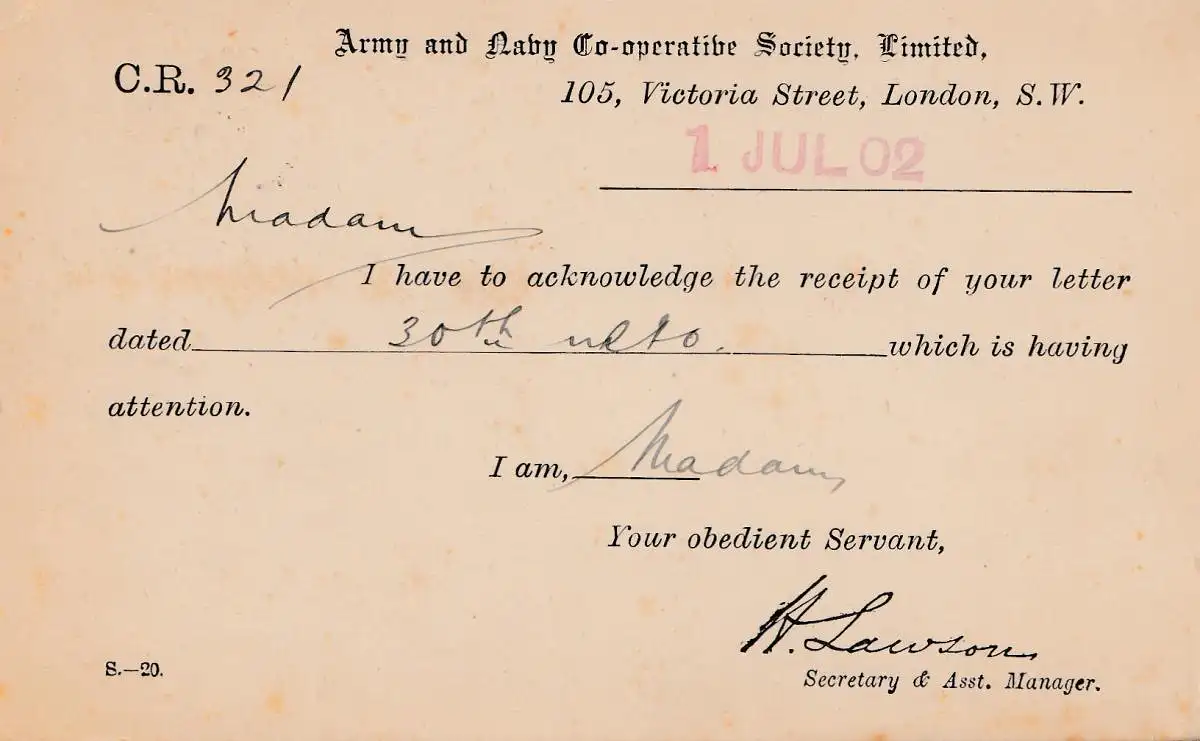 Army and Navy Co-operative Society, Limited,
C.R. 321
105, Victoria Street, London, S.W.
1 JUL 02
Madam
I have to acknowledge the receipt of your letter
dated 30th ulto. which is having
attention.
I am, Madam,
Your obedient Servant,
H. Lawson
Secretary & Asst. Manager.
S.—20.